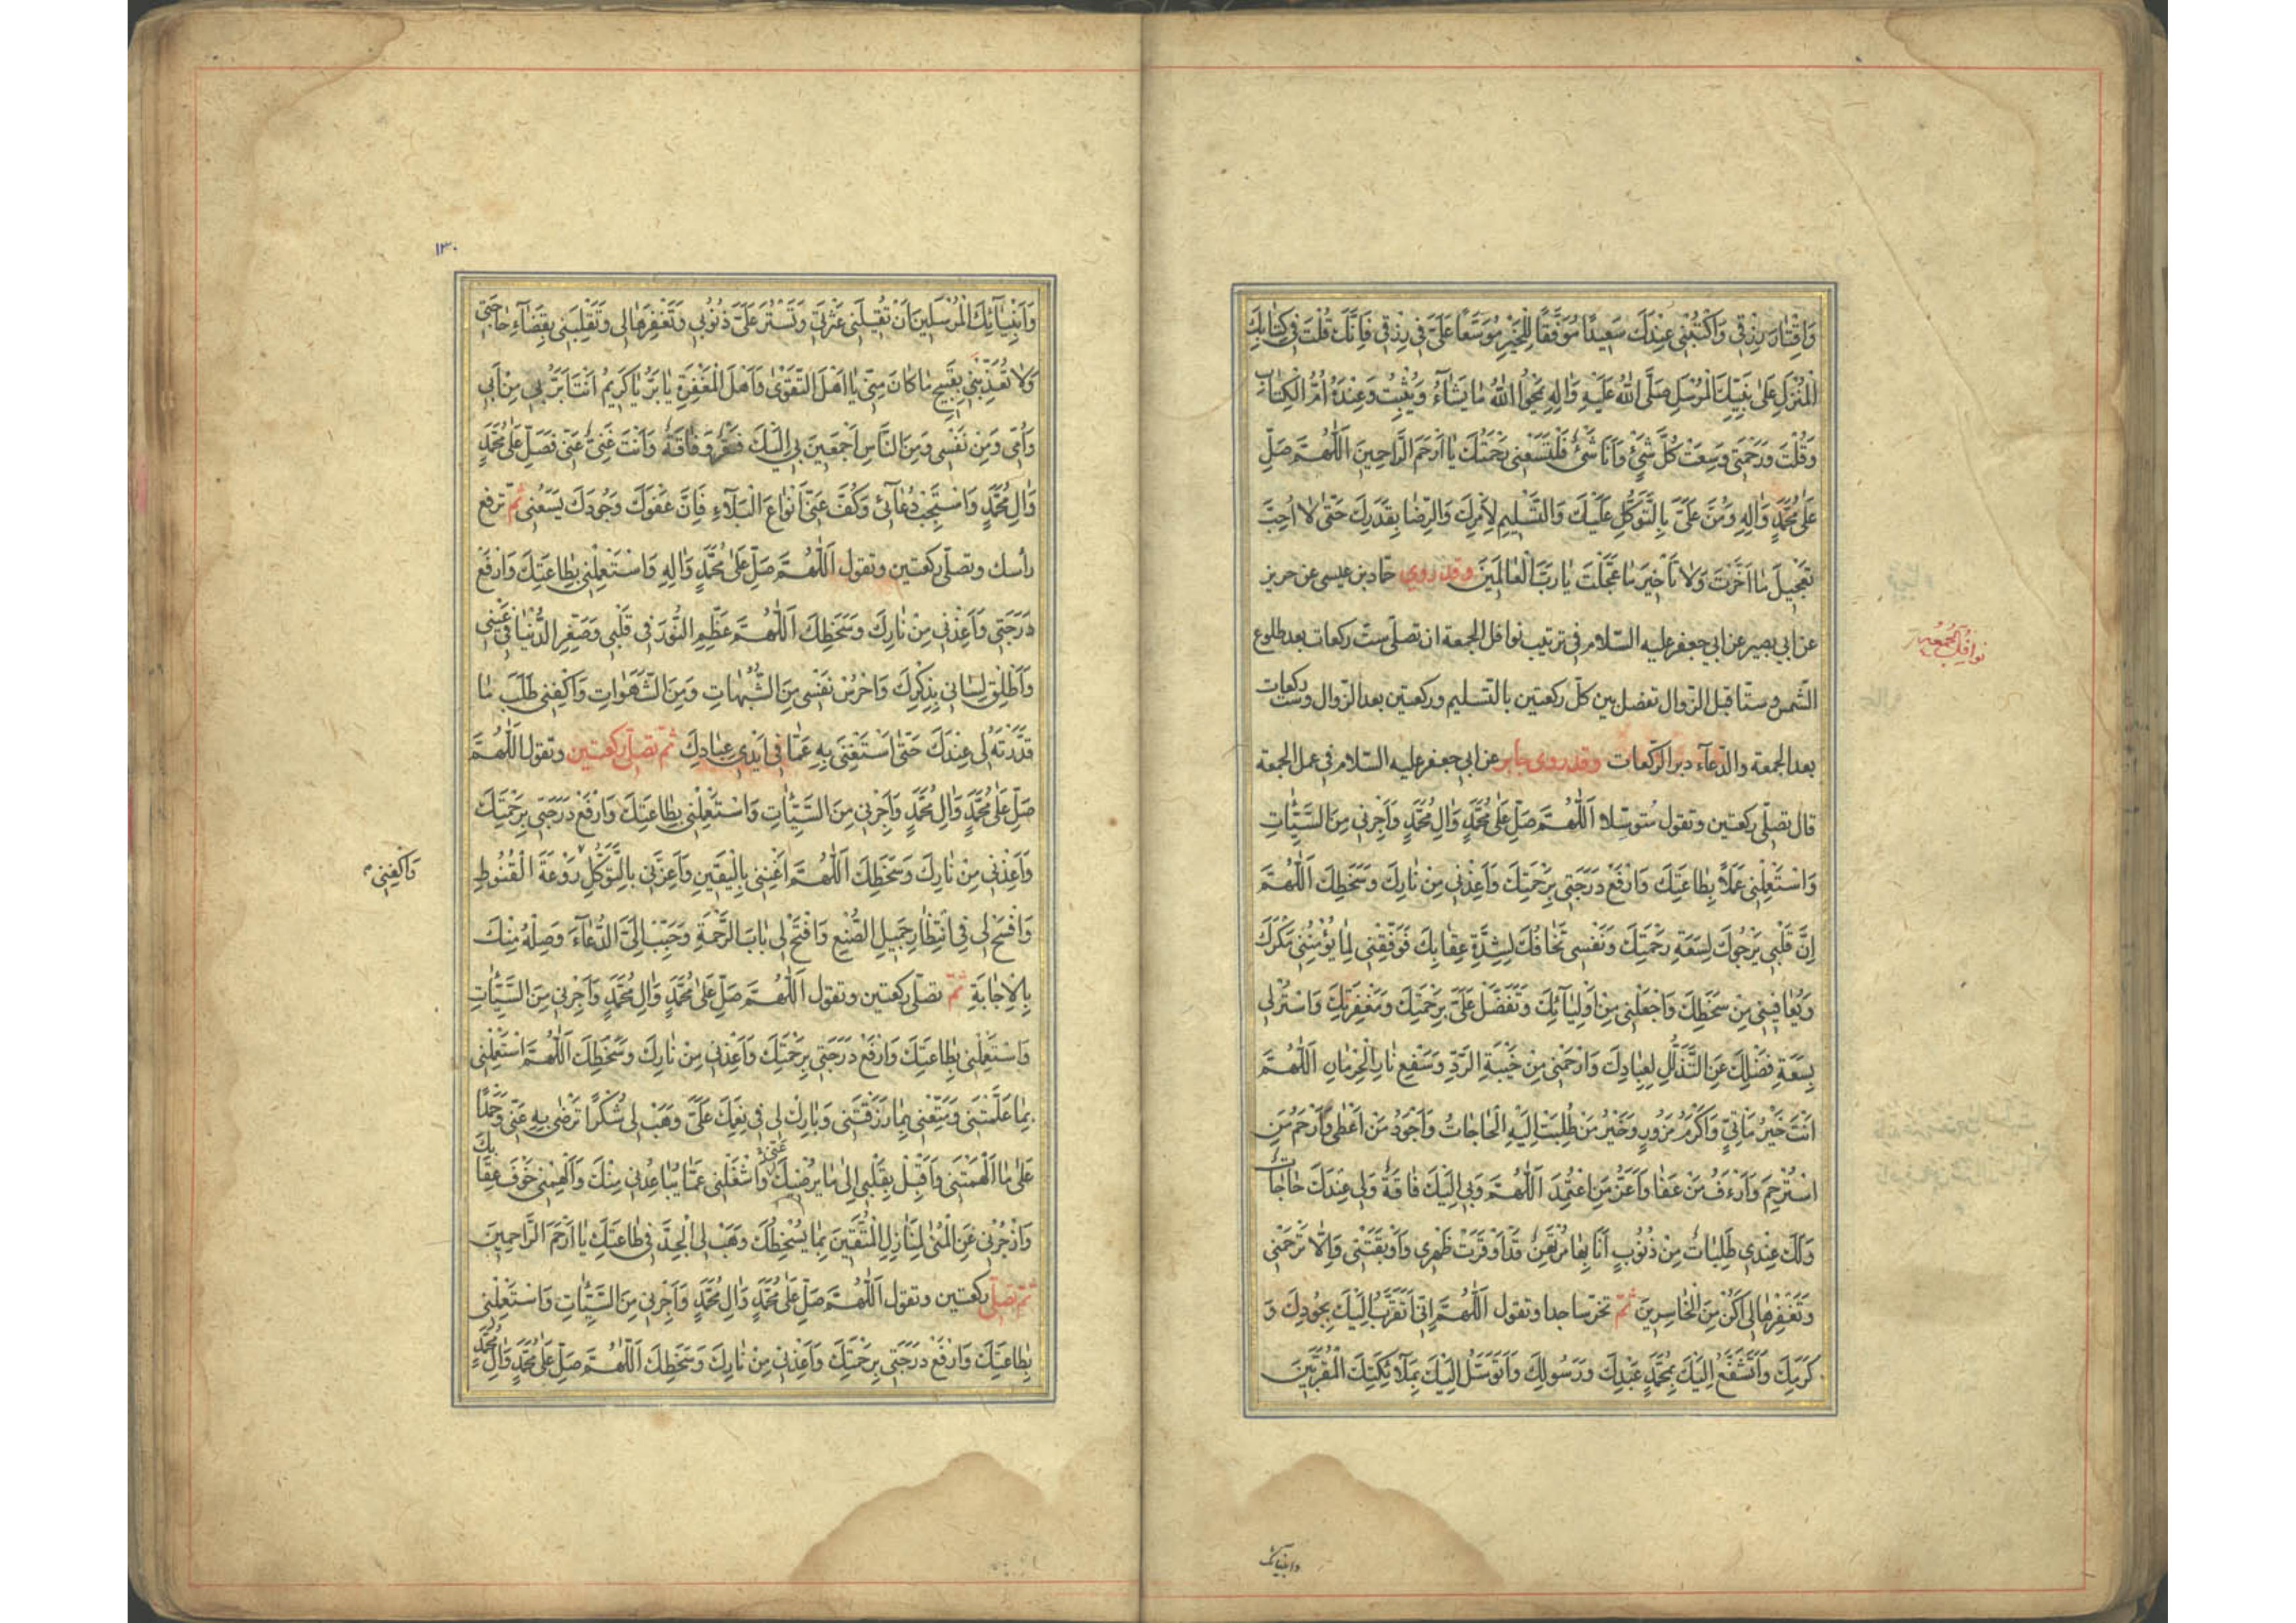 وَاِقْتٰارَ رِزْقِي وَاكْتُبْنِي عِنْدَكَ سَعِيدًا مُوَفَّقًا لِلْخَيْرِ مُوَسَّعًا عَلَيَّ فِي رِزْقِي فَاِنَّكَ قُلْتَ فِي كِتٰابِكَ
الْمُنْزَلِ عَلىٰ نَبِيِّكَ الْمُرْسَلِ صَلَّى اللهُ عَلَيْهِ وَاٰلِهِ يَمْحُوا اللهُ مٰا يَشٰآءُ وَيُثْبِتُ وَعِنْدَهُ اُمُّ الْكِتٰابِ
وَقُلْتَ وَرَحْمَتِي وَسِعَتْ كُلَّ شَيْءٍ وَاَنَا شَيْءٌ فَلْتَسَعْنِي رَحْمَتُكَ يٰا اَرْحَمَ الرَّاحِمِينَ اَللّٰهُمَّ صَلِّ
عَلىٰ مُحَمَّدٍ وَاٰلِهِ وَمُنَّ عَلَيَّ بِالتَّوَكُّلِ عَلَيْكَ وَالتَّسْلِيمِ لِاَمْرِكَ وَالرِّضٰا بِقَدَرِكَ حَتّٰى لٰا اُحِبَّ
تَعْجِيلَ مٰا اَخَّرْتَ وَلٰا تَأْخِيرَ مٰا عَجَّلْتَ يٰا رَبَّ الْعٰالَمِينَ وقد روي حمّاد بن عيسى عن حريز
عن ابي بصير عن ابي جعفر عليه السّلام في ترتيب نوافل الجمعة ان تصلّي ستّ ركعات بعد طلوع
نوافل الجمعة
الشّمس وستّا قبل الزّوال تفصل بين كلّ ركعتين بالتّسليم وركعتين بعد الزّوال وستّ ركعات
بعد الجمعة والدّعآء دبر الرّكعات وقد روى جابر عن ابي جعفر عليه السّلام في عمل الجمعة
قال تصلّي ركعتين وتقول مُتوسّلا اَللّٰهُمَّ صَلِّ عَلىٰ مُحَمَّدٍ وَاٰلِ مُحَمَّدٍ وَاَجِرْنِي مِنَ السَّيِّئٰاتِ
وَاسْتَعْمِلْنِي عَمَلًا بِطٰاعَتِكَ وَارْفَعْ دَرَجَتِي بِرَحْمَتِكَ وَاَعِذْنِي مِنْ نٰارِكَ وَسَخَطِكَ اَللّٰهُمَّ
اِنَّ قَلْبِي يَرْجُوكَ لِسَعَةِ رَحْمَتِكَ وَنَفْسِي تَخٰافُكَ لِشِدَّةِ عِقٰابِكَ فَوَفِّقْنِي لِمٰا يُؤْمِنُنِي مَكْرَكَ
وَيُعٰافِينِي مِنْ سَخَطِكَ وَاجْعَلْنِي مِنْ اَوْلِيٰآئِكَ وَتَفَضَّلْ عَلَيَّ بِرَحْمَتِكَ وَمَغْفِرَتِكَ وَاسْتُرْنِي
بِسَعَةِ فَضْلِكَ عَنِ التَّذَلُّلِ لِعِبٰادِكَ وَارْحَمْنِي مِنْ خَيْبَةِ الرَّدِّ وَسَفْعِ نٰارِ الْحِرْمٰانِ اَللّٰهُمَّ
اَنْتَ خَيْرُ مَأْتِيٍّ وَاَكْرَمُ مَزُورٍ وَخَيْرُ مَنْ طُلِبَتْ اِلَيْهِ الْحٰاجٰاتُ وَاَجْوَدُ مَنْ اَعْطٰى وَاَرْحَمُ مَنِ
اسْتُرْحِمَ وَاَرْءَفُ مَنْ عَفٰا وَاَعَزُّ مَنِ اعْتُمِدَ اَللّٰهُمَّ وَبِي اِلَيْكَ فٰاقَةٌ وَلِي عِنْدَكَ حٰاجٰاتٌ
وَلَكَ عِنْدِي طَلِبٰاتٌ مِنْ ذُنُوبٍ اَنَا بِهٰا مُرْتَهَنٌ قَدْ اَوْقَرَتْ ظَهْرِي وَاَوْبَقَتْنِي وَاِلّٰا تَرْحَمْنِي
وَتَغْفِرْهٰا لِي اَكُنْ مِنَ الْخٰاسِرِينَ ثمّ تخرّ ساجدا وتقول اَللّٰهُمَّ اِنِّي اَتَقَرَّبُ اِلَيْكَ بِجُودِكَ وَ
كَرَمِكَ وَاَتَشَفَّعُ اِلَيْكَ بِمُحَمَّدٍ عَبْدِكَ وَرَسُولِكَ وَاَتَوَسَّلُ اِلَيْكَ بِمَلٰآئِكَتِكَ الْمُقَرَّبِينَ
وانبيائك
١٣٠
وَاَنْبِيٰآئِكَ الْمُرْسَلِينَ اَنْ تُقِيلَنِي عَثْرَتِي وَتَسْتُرَ عَلَيَّ ذُنُوبِي وَتَغْفِرَهٰا لِي وَتَقْلِبَنِي بِقَضٰآءِ حٰاجَتِي
وَلٰا تُعَذِّبَنِي بِقَبِيحِ مٰا كٰانَ مِنِّي يٰا اَهْلَ التَّقْوٰى وَاَهْلَ الْمَغْفِرَةِ يٰا بَرُّ يٰا كَرِيمُ اَنْتَ اَبَرُّ بِي مِنْ اَبِي
وَاُمِّي وَمِنْ نَفْسِي وَمِنَ النّٰاسِ اَجْمَعِينَ بِي اِلَيْكَ فَقْرٌ وَفٰاقَةٌ وَاَنْتَ غَنِيٌّ عَنِّي فَصَلِّ عَلىٰ مُحَمَّدٍ
وَاٰلِ مُحَمَّدٍ وَاسْتَجِبْ دُعٰآئِي وَكُفَّ عَنِّي اَنْوٰاعَ الْبَلٰآءِ فَاِنَّ عَفْوَكَ وَجُودَكَ يَسَعُنِي ثمّ ترفع
رأسك وتصلّي ركعتين وتقول اَللّٰهُمَّ صَلِّ عَلىٰ مُحَمَّدٍ وَاٰلِهِ وَاسْتَعْمِلْنِي بِطٰاعَتِكَ وَارْفَعْ
دَرَجَتِي وَاَعِذْنِي مِنْ نٰارِكَ وَسَخَطِكَ اَللّٰهُمَّ عَظِّمِ النُّورَ فِي قَلْبِي وَصَغِّرِ الدُّنْيٰا فِي عَيْنِي
وَاَطْلِقْ لِسٰانِي بِذِكْرِكَ وَاحْرُسْ نَفْسِي مِنَ الشُّبُهٰاتِ وَمِنَ الشَّهَوٰاتِ وَاكْفِنِي طَلَبَ مٰا
قَدَّرْتَهُ لِي عِنْدَكَ حَتّٰى اَسْتَغْنِيَ بِهِ عَمّٰا فِي اَيْدِي عِبٰادِكَ ثمّ تصلّي ركعتين وتقول اَللّٰهُمَّ
صَلِّ عَلىٰ مُحَمَّدٍ وَاٰلِ مُحَمَّدٍ وَاَجِرْنِي مِنَ السَّيِّئٰاتِ وَاسْتَعْمِلْنِي بِطٰاعَتِكَ وَارْفَعْ دَرَجَتِي بِرَحْمَتِكَ
وَاَعِذْنِي مِنْ نٰارِكَ وَسَخَطِكَ اَللّٰهُمَّ اَغْنِنِي بِالْيَقِينِ وَاَعِزَّنِي بِالتَّوَكُّلِ رَوْعَةَ الْقُنُوطِ
وَاكْفِنِي
وَافْسَحْ لِي فِي انْتِظٰارِ جَمِيلِ الصُّنْعِ وَافْتَحْ لِي بٰابَ الرَّحْمَةِ وَحَبِّبْ اِلَيَّ الدُّعٰآءَ وَصِلْهُ مِنْكَ
بِالْاِجٰابَةِ ثمّ تصلّي ركعتين وتقول اَللّٰهُمَّ صَلِّ عَلىٰ مُحَمَّدٍ وَاٰلِ مُحَمَّدٍ وَاَجِرْنِي مِنَ السَّيِّئٰاتِ
وَاسْتَعْمِلْنِي بِطٰاعَتِكَ وَارْفَعْ دَرَجَتِي بِرَحْمَتِكَ وَاَعِذْنِي مِنْ نٰارِكَ وَسَخَطِكَ اَللّٰهُمَّ اسْتَعْمِلْنِي
بِمٰا عَلَّمْتَنِي وَمَتِّعْنِي بِمٰا رَزَقْتَنِي وَبٰارِكْ لِي فِي نِعَمِكَ عَلَيَّ وَهَبْ لِي شُكْرًا تَرْضٰى بِهِ عَنِّي وَحَمْدًا
عَلىٰ مٰا اَلْهَمْتَنِي وَاَقْبِلْ بِقَلْبِي اِلىٰ مٰا يُرْضِيكَ عَنِّي وَاشْغَلْنِي عَمّٰا يُبٰاعِدُنِي مِنْكَ وَاَلْهِمْنِي خَوْفَ عِقٰابِكَ
وَازْجُرْنِي عَنِ الْمُنٰى لِمَنٰازِلِ الْمُتَّقِينَ بِمٰا يُسْخِطُكَ وَهَبْ لِي الْجِدَّ فِي طٰاعَتِكَ يٰا اَرْحَمَ الرَّاحِمِينَ
ثمّ تصلّي ركعتين وتقول اَللّٰهُمَّ صَلِّ عَلىٰ مُحَمَّدٍ وَاٰلِ مُحَمَّدٍ وَاَجِرْنِي مِنَ السَّيِّئٰاتِ وَاسْتَعْمِلْنِي
بِطٰاعَتِكَ وَارْفَعْ دَرَجَتِي بِرَحْمَتِكَ وَاَعِذْنِي مِنْ نٰارِكَ وَسَخَطِكَ اَللّٰهُمَّ صَلِّ عَلىٰ مُحَمَّدٍ وَاٰلِ مُحَمَّدٍ